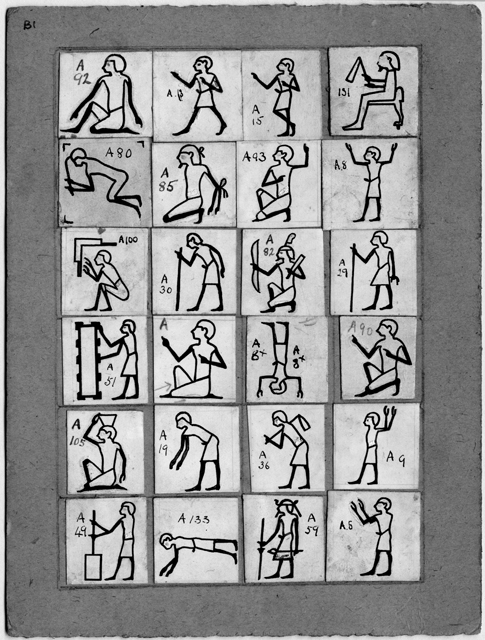 B1
A
92
A
15
131
A 80
A
85
A93
A.8
A100
A
30
A
82
A
29
A
51
A
A
B+
A
8+
A90
A
105
A
19
A
36
A 9
A
49
A 133
A
59